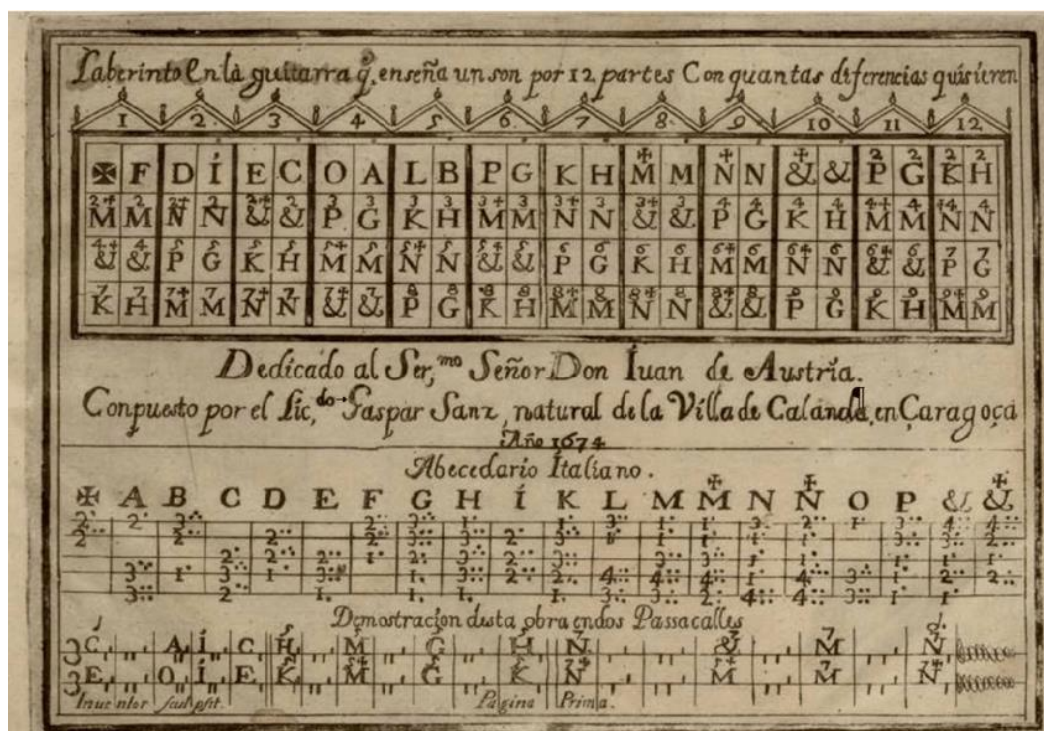 Laberinto en la guitarra q̃. enseña un son por 12 partes Con quantas diferencias quisieren
1 2 3 4 5 6 7 8 9 10 11 12
✠ F D Í E C O A L B P G K H M✠ M N✠ N &✠ & P2 G2 K2 H2
M2+ M2 N2+ N2 &2+ &2 P3 G3 K3 H3 M3+ M3 N3+ N3 &3+ &3 P4 G4 K4 H4 M4+ M4 N4+ N4
&4+ &4 P5 G5 K5 H5 M5+ M5 N5+ N5 &5+ &5 P6 G6 K6 H6 M6+ M6 N6+ N6 &6+ &6 P7 G7
K7 H7 M7+ M7 N7+ N7 &7+ &7 P8 G8 K8 H8 M8+ M8 N8+ N8 &8+ &8 P9 G9 K9 H9 M9+ M9
Dedicado al Ser,mo Señor Don Íuan de Austria.
Conpuesto por el Lic,do Gaspar Sanz, natural de la Villa de Calanda, en Çaragoça
Año 1674
Abecedario Ítaliano.
✠ A B C D E F G H Í K L M M✠ N N✠ O P & &✠
Demostracion desta obra en dos Passacalles
C A Í C H M G H N & M N
E O Í E K M G K N M M N
Inuentor sculpsit. Pagina Prima.